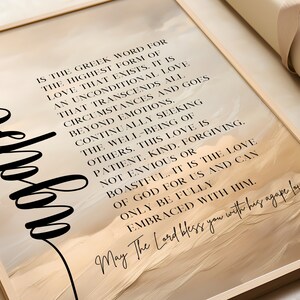 agape
IS THE GREEK WORD FOR
THE HIGHEST FORM OF
LOVE THAT EXISTS. IT IS
AN UNCONDITIONAL LOVE
THAT TRANSCENDS ALL
CIRCUMSTANCES AND GOES
BEYOND EMOTIONS,
CONTINUALLY SEEKING
THE WELL-BEING OF
OTHERS. THIS LOVE IS
PATIENT, KIND, FORGIVING,
NOT ENVIOUS OR
BOASTFUL. IT IS THE LOVE
OF GOD FOR US AND CAN
ONLY BE FULLY
EMBRACED WITH HIM.
May The Lord bless you with his agape